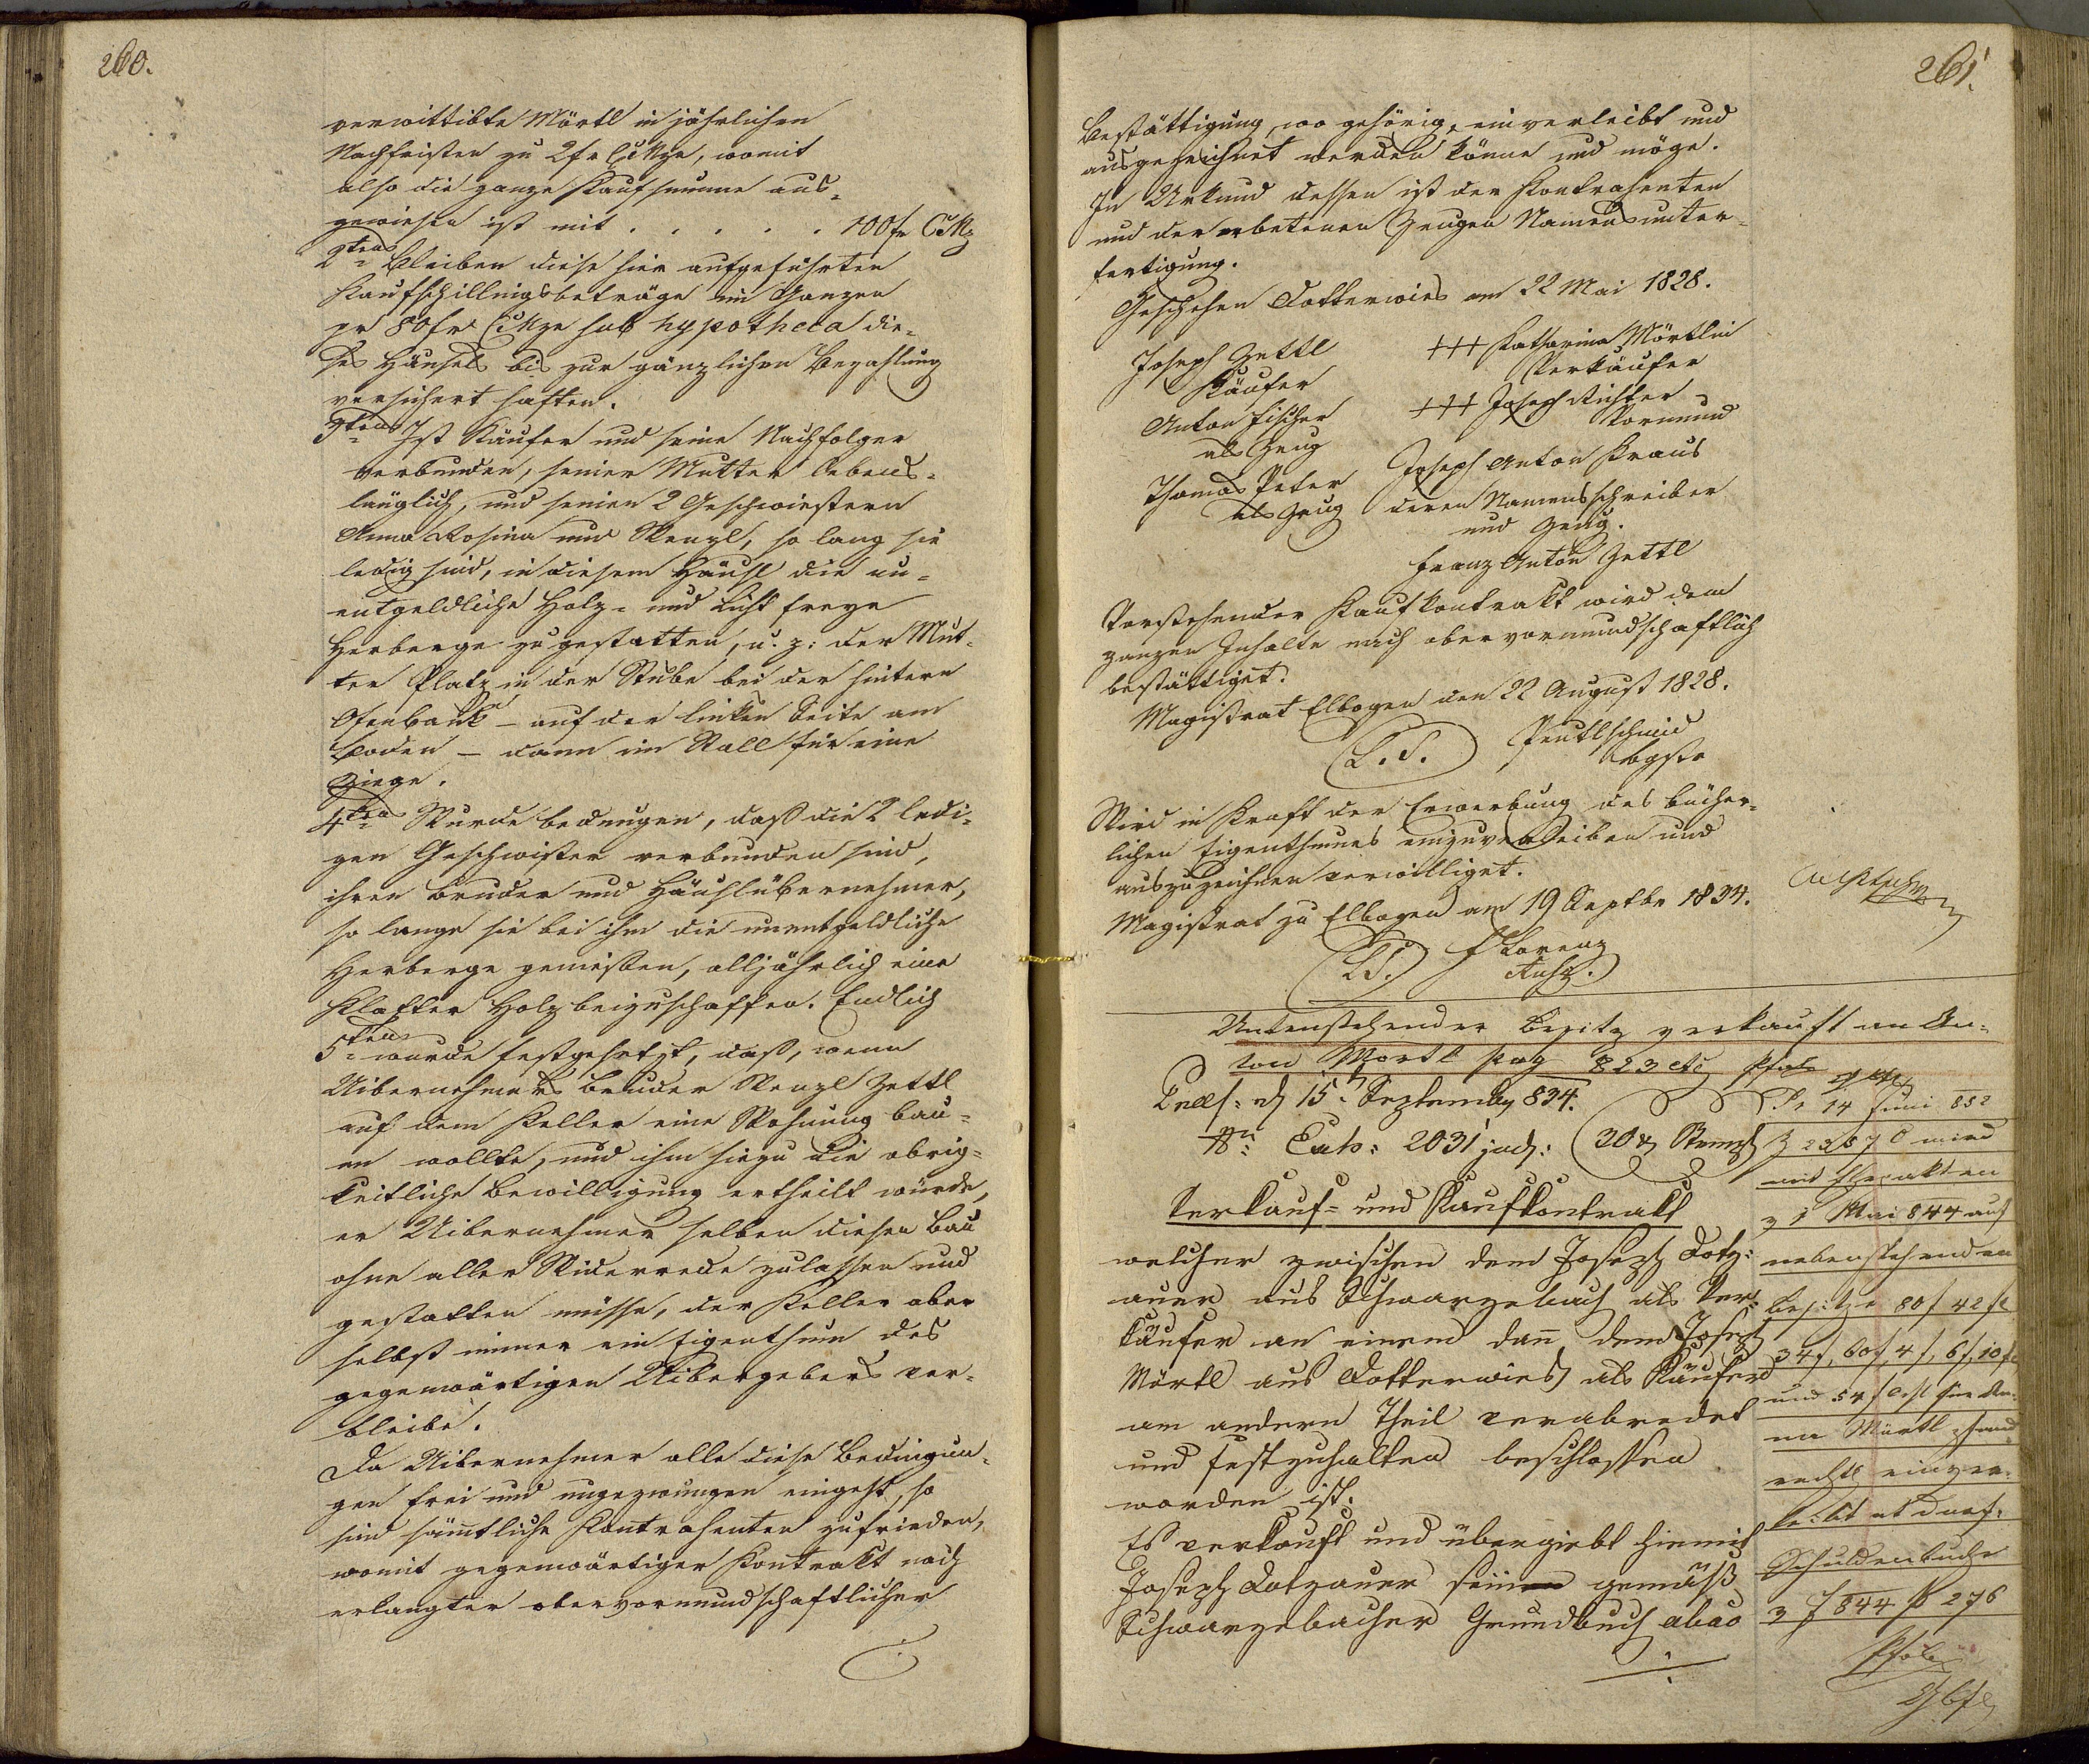 260.
verwittibte Mörtl in jährlichen
Nachfristen zu 2 fr CMze, womit
also die ganze Kaufsumme aus-
gewiesen ist mit . . . . . 100 fr CMz
2tens Bleiben diese hier aufgeführten
Kaufschillingsbeträge im Ganzen
pr 80 fr CMze sub hypotheca die-
ses Häusels bis zur gänzlichen Bezahlung
versichert haften.
3tens Ist Käufer und seine Nachfolger
verbunden, seiner Mutter lebens-
länglich, und seinen 2 Geschwistern
Anna Rosina und Wenzl, so lang sie
ledig sind, in diesem Häusl die un-
entgeldliche Holz- und Licht freye
Herberge zu gestatten, u. z: der Mut-
ter Platz in der Stube bei der hintern
Ofenbank – auf der linken Seite am
Boden – dann im Stall für eine
Ziege.
4tens Wurde bedungen, daß die 2 ledi-
gen Geschwister verbunden sind,
ihren Bruder und Häuslübernehmer,
so lange sie bei ihm die unentgeldliche
Herberge genießen, alljährlich eine
Klafter Holz beizuschaffen. Endlich
5tens wurde festgesetzt, daß, wenn
Uibernehmers Bruder Wenzl Zettl
auf dem Keller eine Wohnung bau-
en wollte, und ihm hiezu die obrig-
keitliche Bewilligung ertheilt würde,
er Uibernehmer selben diesen Bau
ohne aller Widerrede zulassen und
gestatten müsse, der Keller aber
selbst immer ein Eigenthum des
gegenwärtigen Uibergebers ver-
bleibe.
Da Uibernehmer alle diese Bedingun-
gen frei und ungezwungen eingeht, so
sind sämtliche Kontrahenten zufrieden,
womit gegenwärtiger Kontrakt nach
erlangter obervormundschaftlicher
261.
Bestättigung, wo gehörig, einverleibt und
ausgezeichnet werden könne und möge.
In Urkund dessen ist der Kontrahenten
und der erbetenen Zeugen Namensunter-
fertigung.
Geschehen Dotterwies am 22 Mai 1828.
Joseph Zettl +++ Katharina Mörtlin
Käufer Verkäufer
Anton Fischer +++ Joseph Richter
als Zeug Vormund
Thomas Peter Joseph Anton Kraus
als Zeug deren Namensschreiber
und Zeug.
Franz Anton Zettl
Vorstehender Kaufkontrakt wird dem
ganzen Inhalte nach obervormundschaftlich
bestättiget.
Magistrat Elbogen den 22 August 1828.
L. S.
Wird in Kraft der Erwerbung des bücher-
lichen Eigenthumes einzuverleiben und
auszuzeichnen verwilliget.
Magistrat zu Elbogen am 19 Septbr 1834.
L.S. Lorenz
Untenstehender Besitz verkauft an An-
ton Mörtl pag 823
15 September 834.
2031 jud: 30 Stempl
Verkauf- und Kaufkontrakt
welcher zwischen dem Joseph Dotz-
auer aus Schwarzebach als Ver-
käufer an einem dan dem Joseph
Mörtl aus Dotterwies als Käufer
am andern Theil verabredet
und festzuhalten beschlossen
worden ist.
Es verkauft und übergiebt hiemit
Joseph Dotzauer seinen gemäß
Schwarzebacher Grundbuch
14 Juni 852
wird
mit Kontrakt
1 Mai 844 auf
nebenstehenden
Besitze 80 f 42 f
34 f, 60 f, 4 f, 6 f, 10 f
und 54 f für
Mörtl
einver-
leibt
Schuldenbuch
844 276